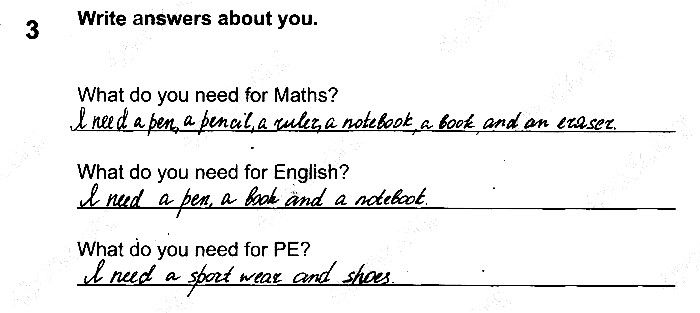 3 Write answers about you.
What do you need for Maths?
I need a pen, a pencil, a ruler, a notebook, a book and an eraser.
What do you need for English?
I need a pen, a book and a notebook.
What do you need for PE?
I need a sport wear and shoes.